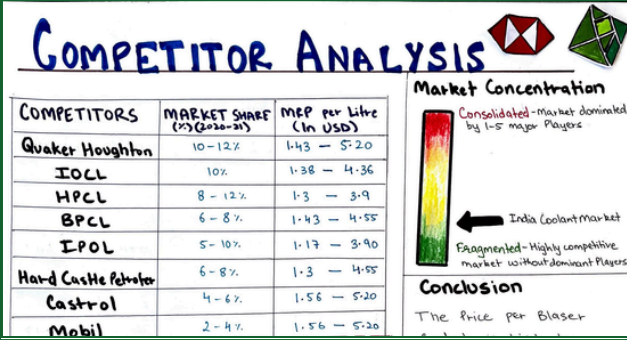 COMPETITOR ANALYSIS
COMPETITORS MARKET SHARE (%) (2020-21) MRP per Litre (In USD)
Quaker Houghton 10-12% 1.43 - 5.20
IOCL 10% 1.38 - 4.36
HPCL 8 - 12% 1.3 - 3.9
BPCL 6 - 8% 1.43 - 4.55
IPOL 5- 10% 1.17 - 3.90
Hard Castle Petrofer 6-8% 1.3 - 4.55
Castrol 4-6% 1.56 - 5.20
Mobil 2-4% 1.56 - 5.20
Market Concentration
Consolidated - Market dominated
by 1-5 major Players
India Coolant Market
Fragmented - Highly competitive
market without dominant Players
Conclusion
The Price per Blaser